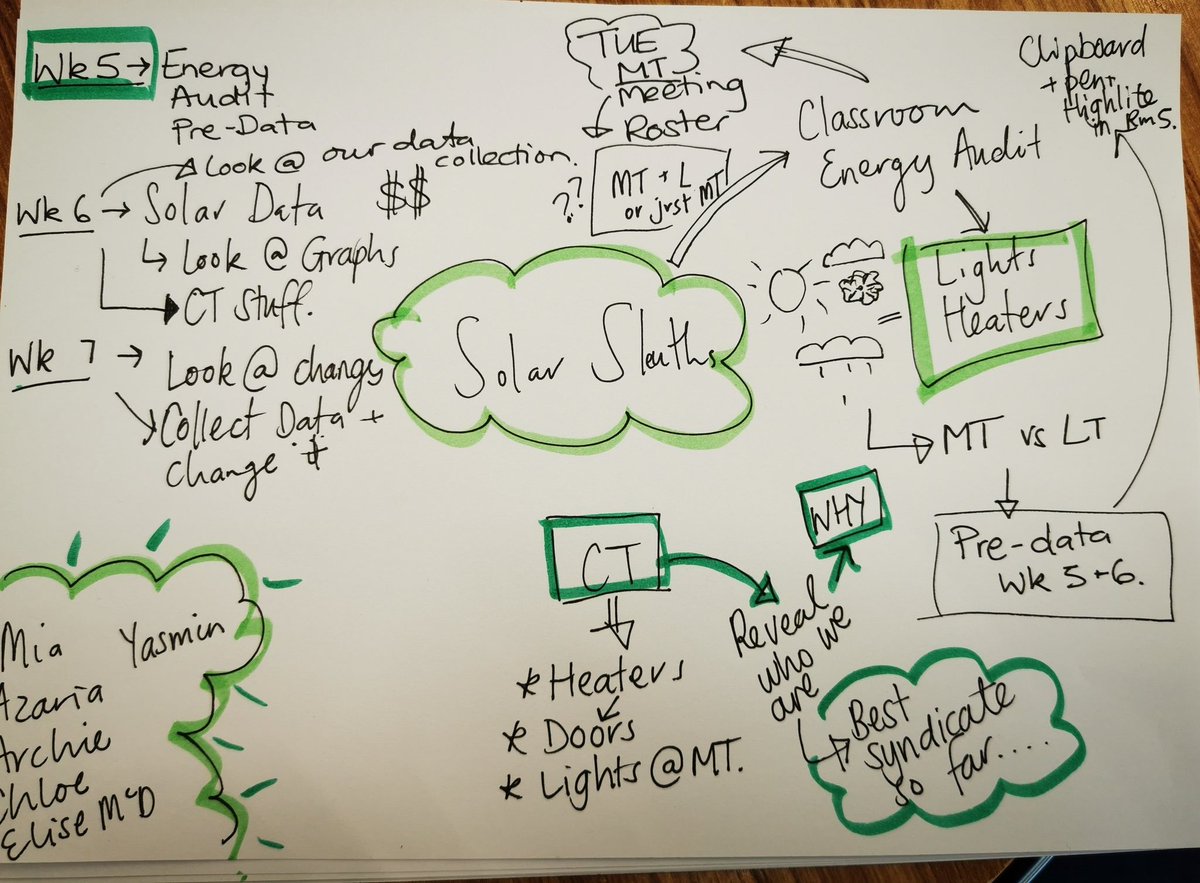 Wk 5 → Energy
Audit
Pre-Data
Look @ our data
collection.
Wk 6 → Solar Data
$$
↳ Look @ Graphs
CT Stuff.
Wk 7 → Look @ change
Collect Data +
change $
TUE
MT
meeting
Roster
??
MT + L
or just MT
Classroom
Energy Audit
Clipboard
+ pen +
Highlite
in Rm 5.
Solar Sleuths
Lights
Heaters
MT vs LT
Pre-data
Wk 5+6.
CT
* Heaters
* Doors
* Lights @ MT.
WHY
Reveal
who we
are
Best
syndicate
so far....
Mia Yasmin
Azaria
Archie
Chloe
Elise McD